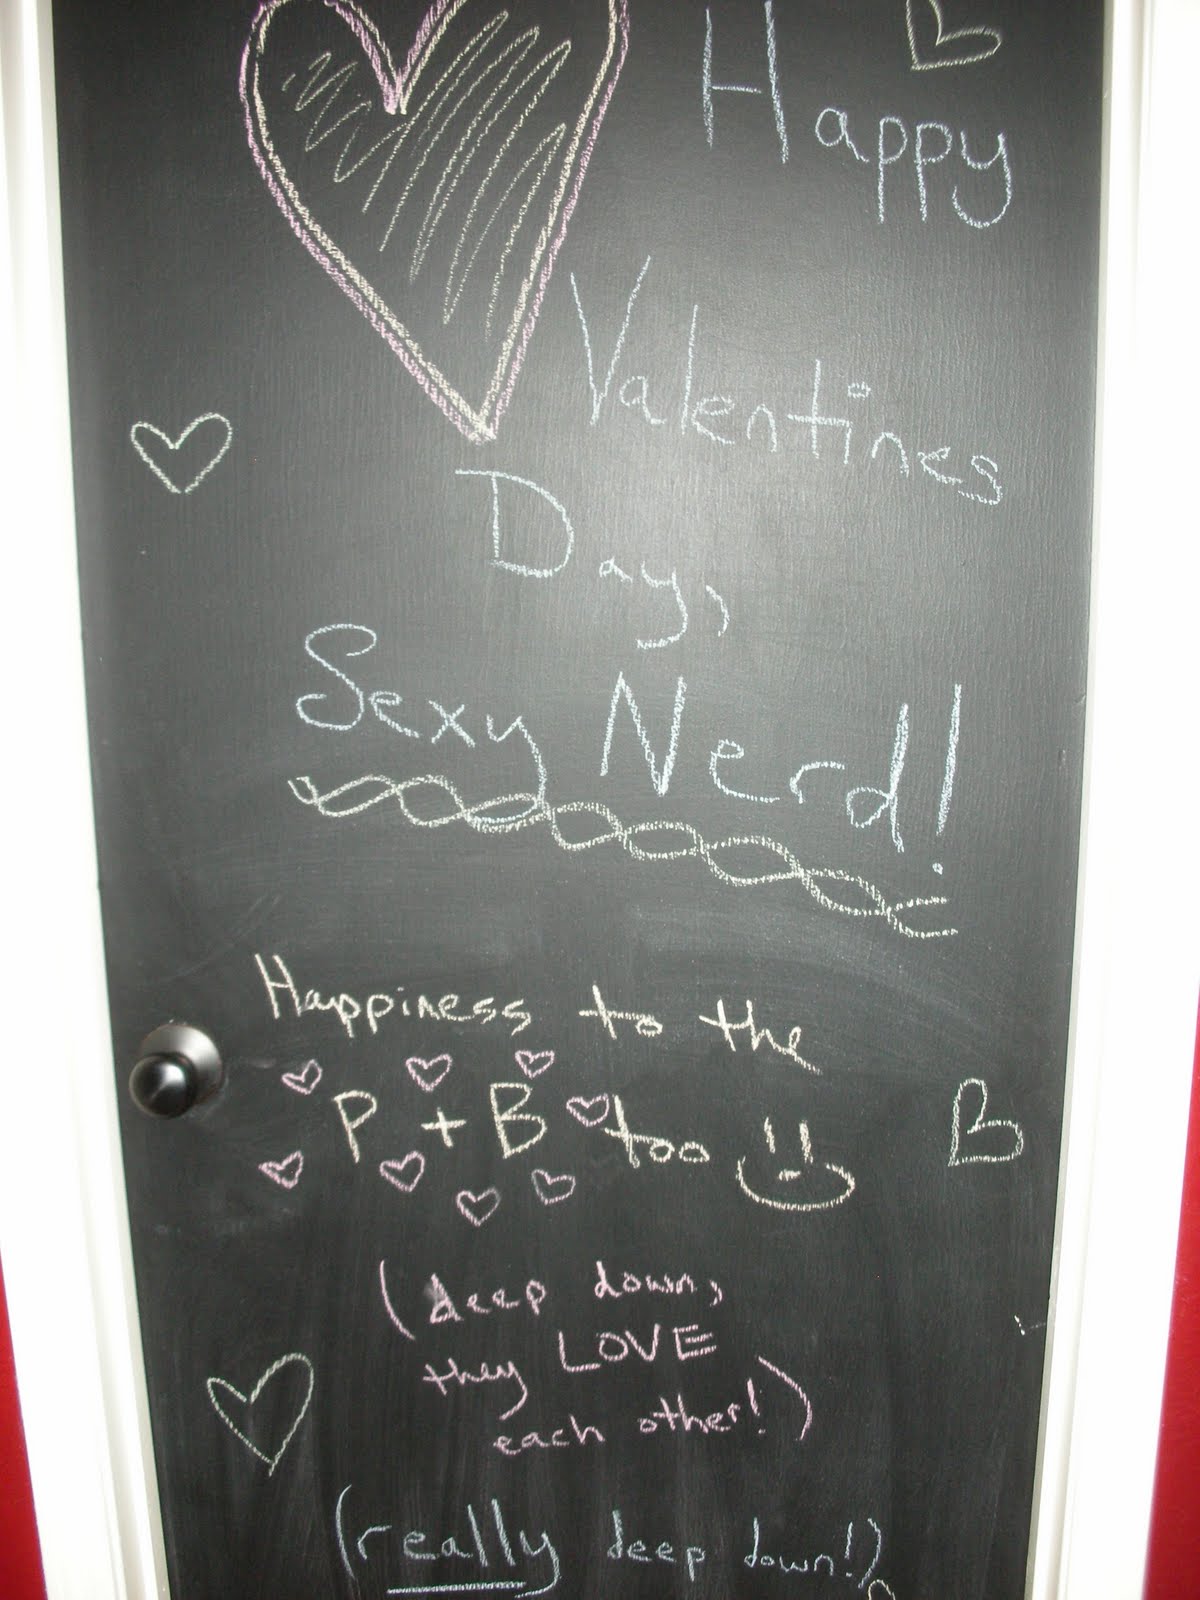 Happy
Valentines
Day,
Sexy Nerd!
Happiness to the
P + B too
(deep down,
they LOVE
each other!)
(really deep down!)